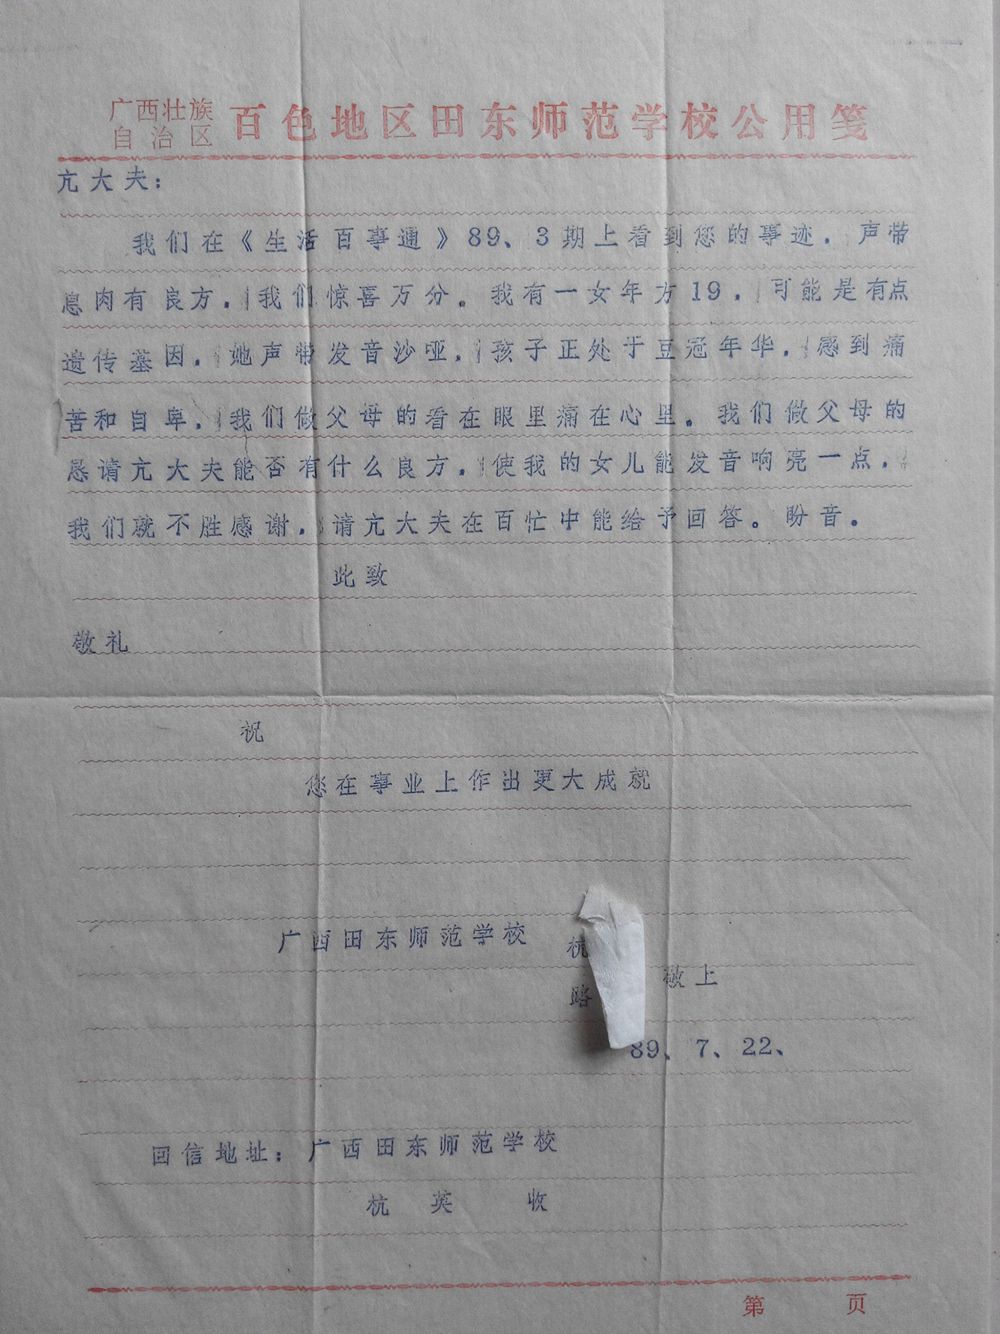 广西壮族
自治区
百色地区田东师范学校公用笺
亢大夫：
我们在《生活百事通》89、3期上看到您的事迹，声带
息肉有良方，我们惊喜万分。我有一女年方19，可能是有点
遗传基因，她声带发音沙哑，孩子正处于豆冠年华，感到痛
苦和自卑，我们做父母的看在眼里痛在心里。我们做父母的
恳请亢大夫能否有什么良方，使我的女儿能发音响亮一点，
我们就不胜感谢，请亢大夫在百忙中能给予回答。盼音。
此致
敬礼
祝
您在事业上作出更大成就
广西田东师范学校 杭
路 敬上
89、7、22、
回信地址：广西田东师范学校
杭 英 收
第 页